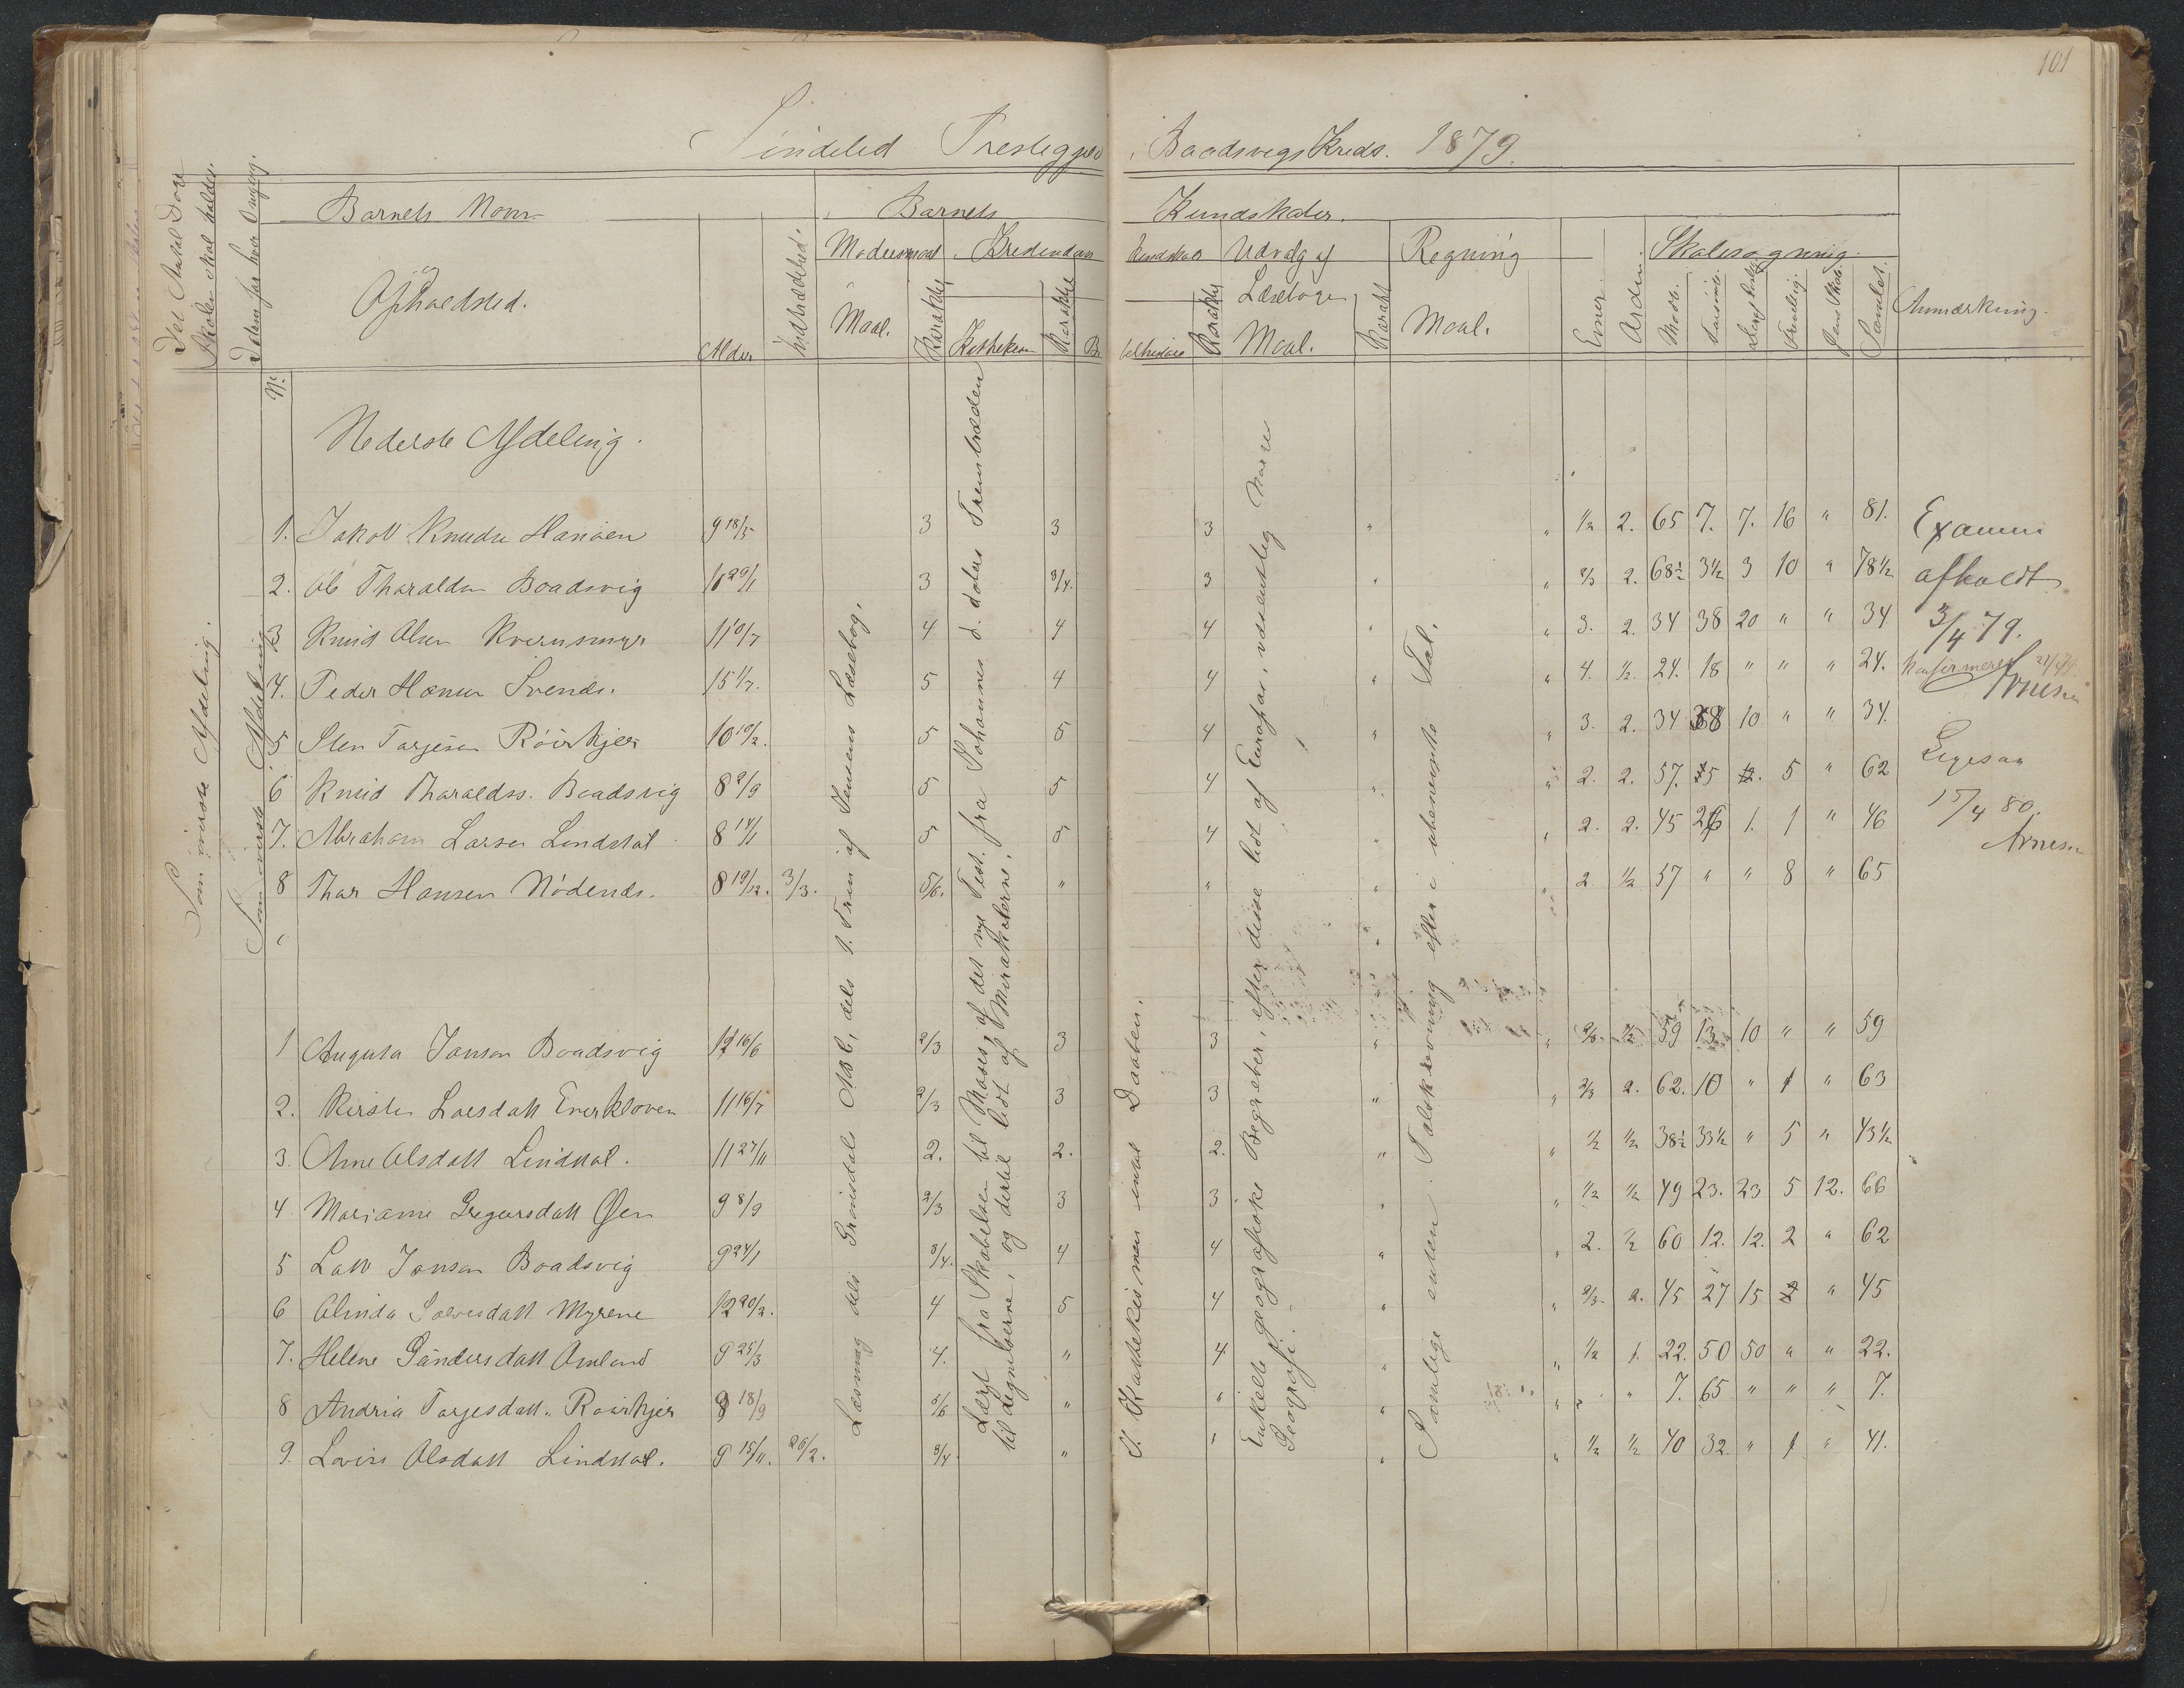 101
Søndeled Prestegjeld, Baadsvigs Kreds. 1879.
Det Antal Dage
Skolen skal holdes.
Datum for hver Omgang.
Barnets Navn
Opholdsted.
Alder
Indtrædelsestid.
Barnets Kundskaber.
Modersmaal
Maal.
Karakter
Kristendoms kundskab
Karakter
Udvalg af Læsebogen
Maal.
Karakt.
Regning
Maal.
Evner.
Orden.
Skolesøgning.
Modt.
Forsømt.
Frivillig.
Samlet.
Anmærkning.
No.
Nederste Afdeling.
1. Jakob Knudn Hansen 9 18/5 3 3 3 " " 1/2 2. 65 7. 7. 16 " 81.
2. Ole Tharalds Baadsvig 10 29/1 3 3/4. 3 " " 2/3 2. 68½ 3½ 3 10 " 78½
3 Knud Olsen Kvernsmyr 11 10/7 4 4 4 " " 3. 2. 34 38 20 " " 34
4. Peder Hansen Svends. 15 1/7. 5 4 4 " " 4. 1/2. 24. 18 " " " 24.
5 Sten Tarjesen Röirkjer 10 10/2. 5 5 4 " " 3. 2. 34 38 10 " " 34.
6 Knud Tharaldss. Baadsvig 8 2/9 5 5 4 " " 2. 2. 57. 5 5 " 62
7. Abraham Larsen Lindstøl 8 14/1 5 5 4 " " 2. 2. 45 26 1. 1 " 46
8 Thor Hansen Nødends. 8 19/12. 3/3. 5/6. " " " " 2 1/2 57 " " 8 " 65
1 Augusta Jansen Baadsvig 12 16/6 2/3 3 3 " " 2/3. 1/2 59 13 10 " " 59
2. Kirsten Larsdatt Everkloven 11 16/7 2/3 3 3 " " 2/3 2. 62. 10 " 1 " 63
3. Ane Olsdatt Lindstøl. 11 27/11 2. 2. 2. " " 1/2 1/2 38½ 33½ " 5 " 43½
4 Mariane Gregersdatt Øen 9 8/9 2/3 3 3 " " 1/2 1/2 49 23. 23 5 12. 66
5 Lall Jansen Baadsvig 9 24/1 3/4. 4 4 " " 2. 1/2 60 12. 12. 2 " 62
6 Olinda Salvesdatt Myrene 12 20/2. 4 5 4 " " 2/3. 2. 45 27 15 " 45
7. Helene Gundersdatt Omland 9 25/3 4. " 4 " " 1/2 1. 22. 50 50 " " 22.
8 Andria Tarjesdatt. Röirkjer 9 18/9 5/6 " " " " " " 7. 65 " " " 7.
9. Lovise Olsdatt Lindstøl. 9 15/11. 26/2. 3/4 " " " " 1/2 1/2 40 32. " 1 " 41.
Som øverste Afdeling.
Som øverste Afdeling
Læsning dels Grønsdals Abc, dels 1. Trin af Jensens Læsebog.
Lært fra Skabelsen til Moses, af det nye Test. fra Johannes d. døbers Fremtræden
til Lignelserne, og dertil lidt af Miraklerne.
U. Kattekismen indtil Daaben.
Enkelte geografiske Begreber, efter disse lidt af Europas, udenlandsig nære
Geografi.
Samlige enten Talskrivning efter i ubenævnte Tal.
Examen
afholdt
3/4 79.
Konfirmeret
Arnesen
Ligesaa
15/4 80.
Arnesen